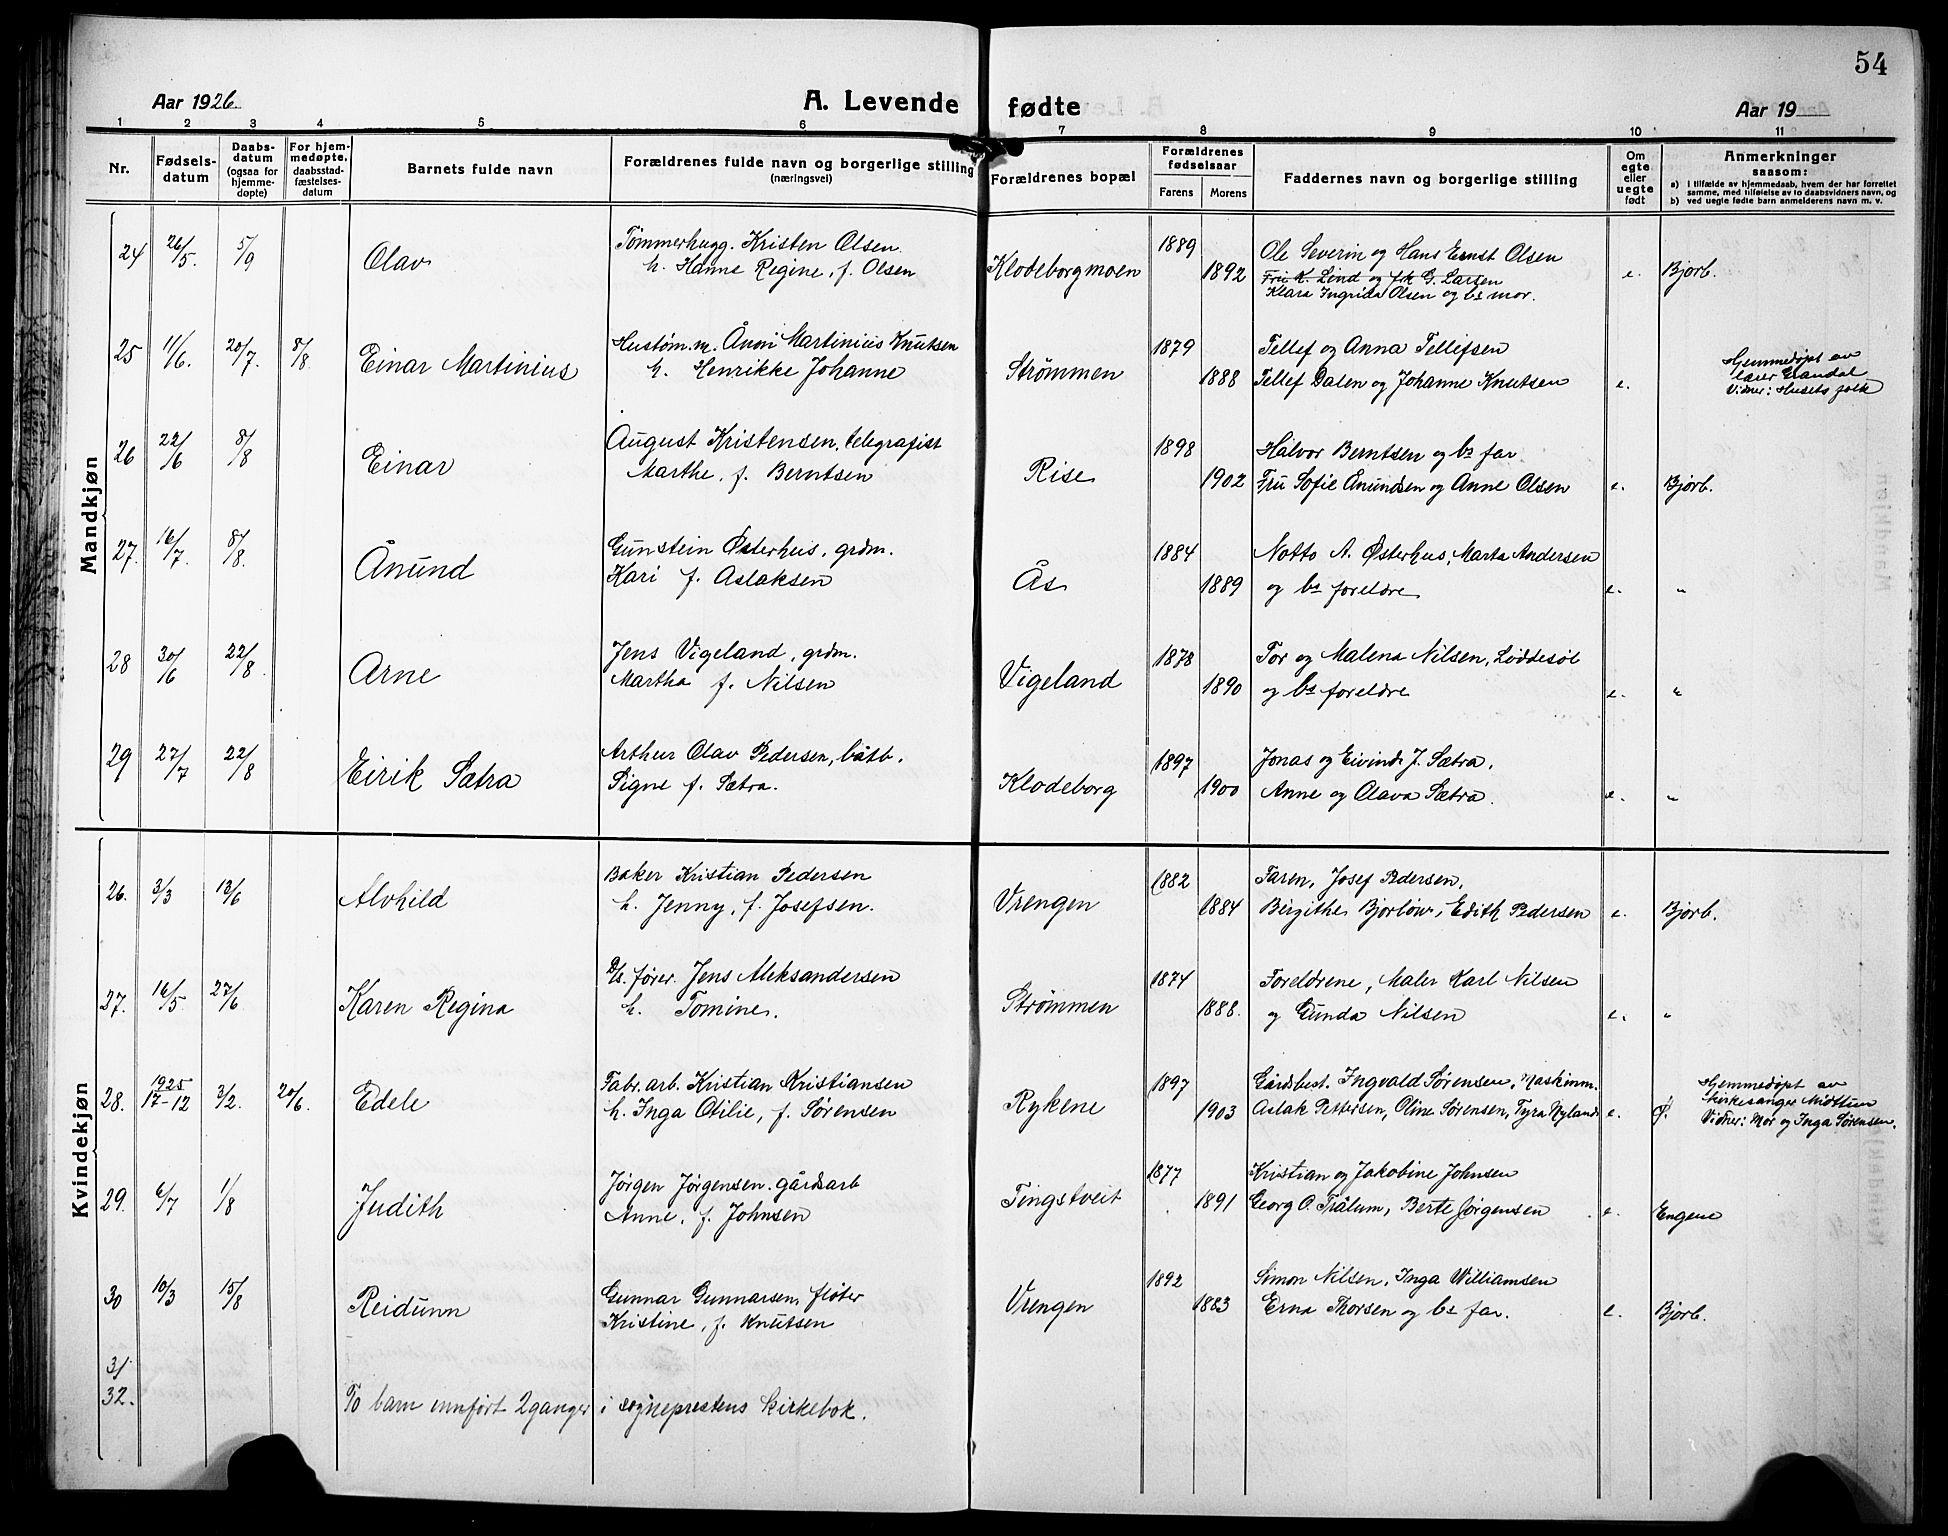 54
Aar 1926. A. Levende fødte Aar 19
1 2 3 4 5 6 7 8 9 10 11
Nr.
Fødsels-
datum
Daabs-
datum
(ogsaa for
hjemme-
døpte)
For hjem-
medøpte,
daabsstad-
fæstelses-
datum
Barnets fulde navn
Forældrenes fulde navn og borgerlige stilling
(næringsvei)
Forældrenes bopæl
Forældrenes
fødselsaar
Farens Morens
Faddernes navn og borgerlige stilling
Om
egte
eller
uegte
født
Anmerkninger
saasom:
a) i tilfælde av hjemmedaab, hvem der har forrettet
samme, med tilføielse av to daabsvidners navn, og
b) ved uegte fødte barn anmelderens navn m. v.
Mandkjøn
24 26/5. 5/9 Olav Tømmerhugg. Kristen Olsen
h. Hanne Regine, f. Olsen
Klodeborgmoen 1889 1892
Ole Severin og Hans Ernst Olsen
Fru K. Lind og frk G. Larsen
Klara Ingrida Olsen og bs mor.
e. Bjorb.
25 11/6. 20/7. 8/8 Einar Martinius Hustøm.m. Ånon Martinius Knutsen
h. Henrikke Johanne
Strømmen 1879 1888
Tellef og Anna Tellefsen
Tellef Dalen og Johanne Knutsen
e. Hjemmedøpt av
lærer Grandal
Vidner: Husets folk
26 22/6 8/8 Einar August Kristensen, telegrafist
Marthe, f. Berntsen
Rise 1898 1902
Halvor Berntsen og bs far
Fru Sofie Anundsen og Anne Olsen
e. Bjorb.
27. 16/7. 8/8. Ånund Gunstein Østerhus, grdm.
Kari f. Aslaksen
Ås 1884 1889
Notto A. Østerhus, Marta Andersen
og bs foreldre
e. "
28 30/6 22/8 Arne Jens Vigeland, grdm.
Martha f. Nilsen
Vigeland 1878 1890
Tor og Malena Nilsen, Løddesøl
og bs foreldre
e. "
29 27/7 22/8 Eirik Sætra Arthur Olav Pedersen, båtb.
Signe f. Sætra.
Klodeborg 1897 1900
Jonas og Eivind J. Sætra.
Anne og Olava Sætra.
e. "
Kvindekjøn
26. 3/3 13/6 Alvhild Baker Kristian Pedersen
h. Jenny, f. Josefsen.
Vrengen 1882 1884
Faren, Josef Pedersen,
Birgithe Bjorlow, Edith Pedersen
e. Bjorb.
27. 16/5 27/6 Karen Regina D/s. fører. Jens Aleksandersen
h. Tomine.
Strømmen 1874 1888.
Foreldrene, Maler Karl Nilsen
og Gunda Nilsen
e. "
28. 1925
17-12 3/2. 20/6. Edele Fabr. arb. Kristian Kristiansen
h. Inga Otilie, f. Sørensen
Rykene 1897 1903
Gårdbest. Ingvald Sørensen, Maskinm.
Aslak Pettersen, Oline Sørensen, Tyra Nyland
e. Ø. Hjemmedøpt av
kirkesanger Midttun
Vidner: Mor og Inga Sørensen.
29. 6/7 1/8 Judith Jørgen Jørgensen, gårdsarb
Anne, f. Johnsen
Tingstveit 1877 1891
Kristian og Jakobine Johnsen
Georg O. Trålum, Berte Jørgensen
e. Engene
30 10/3 15/8 Reidunn Gunnar Gunnarsen, fløter
Kristine, f. Knutsen
Vrengen 1892 1883
Simon Nilsen, Inga Williamsen
Erna Thorsen og bs far.
e. Bjorb.
31
32. To barn innført 2 ganger i sogneprestens kirkebok.